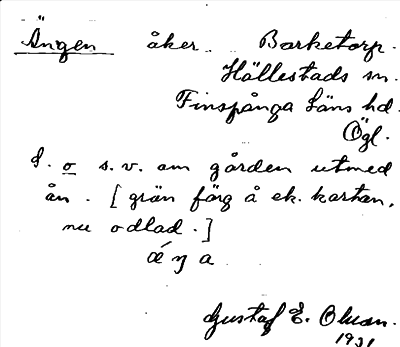 Ängen åker. Borketorp.
Hällestads sn.
Finspånga Läns hd.
Ögl.
S. o s.v. om gården utmed
ån. [grön färg å ek. kartan,
nu odlad.]
Gustaf E. Olsson.
1931